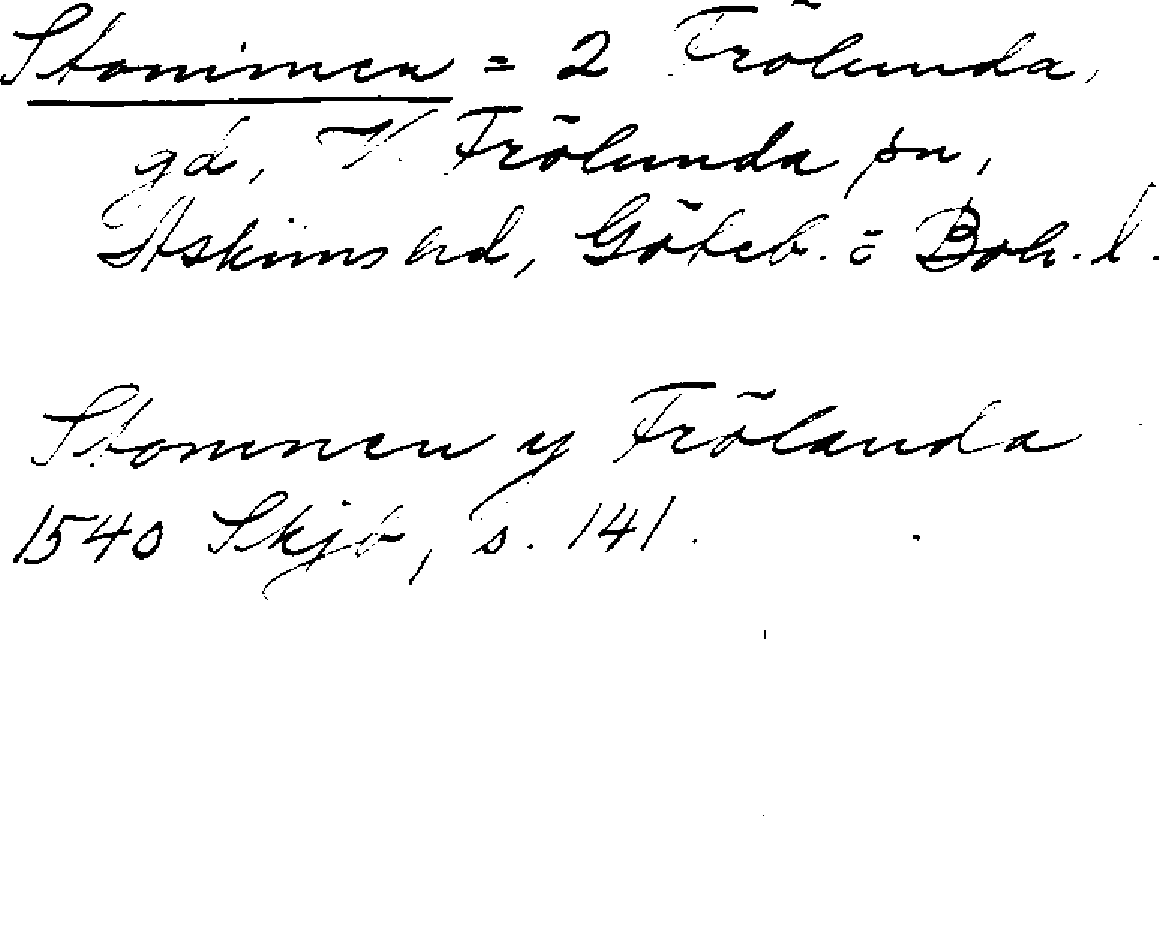 Stommen = 2 Frölunda,
gd, V. Frölunda sn,
Askims hd, Göteb. o Boh. l.
Stommen y Frölanda
1540 Skjb, s. 141.